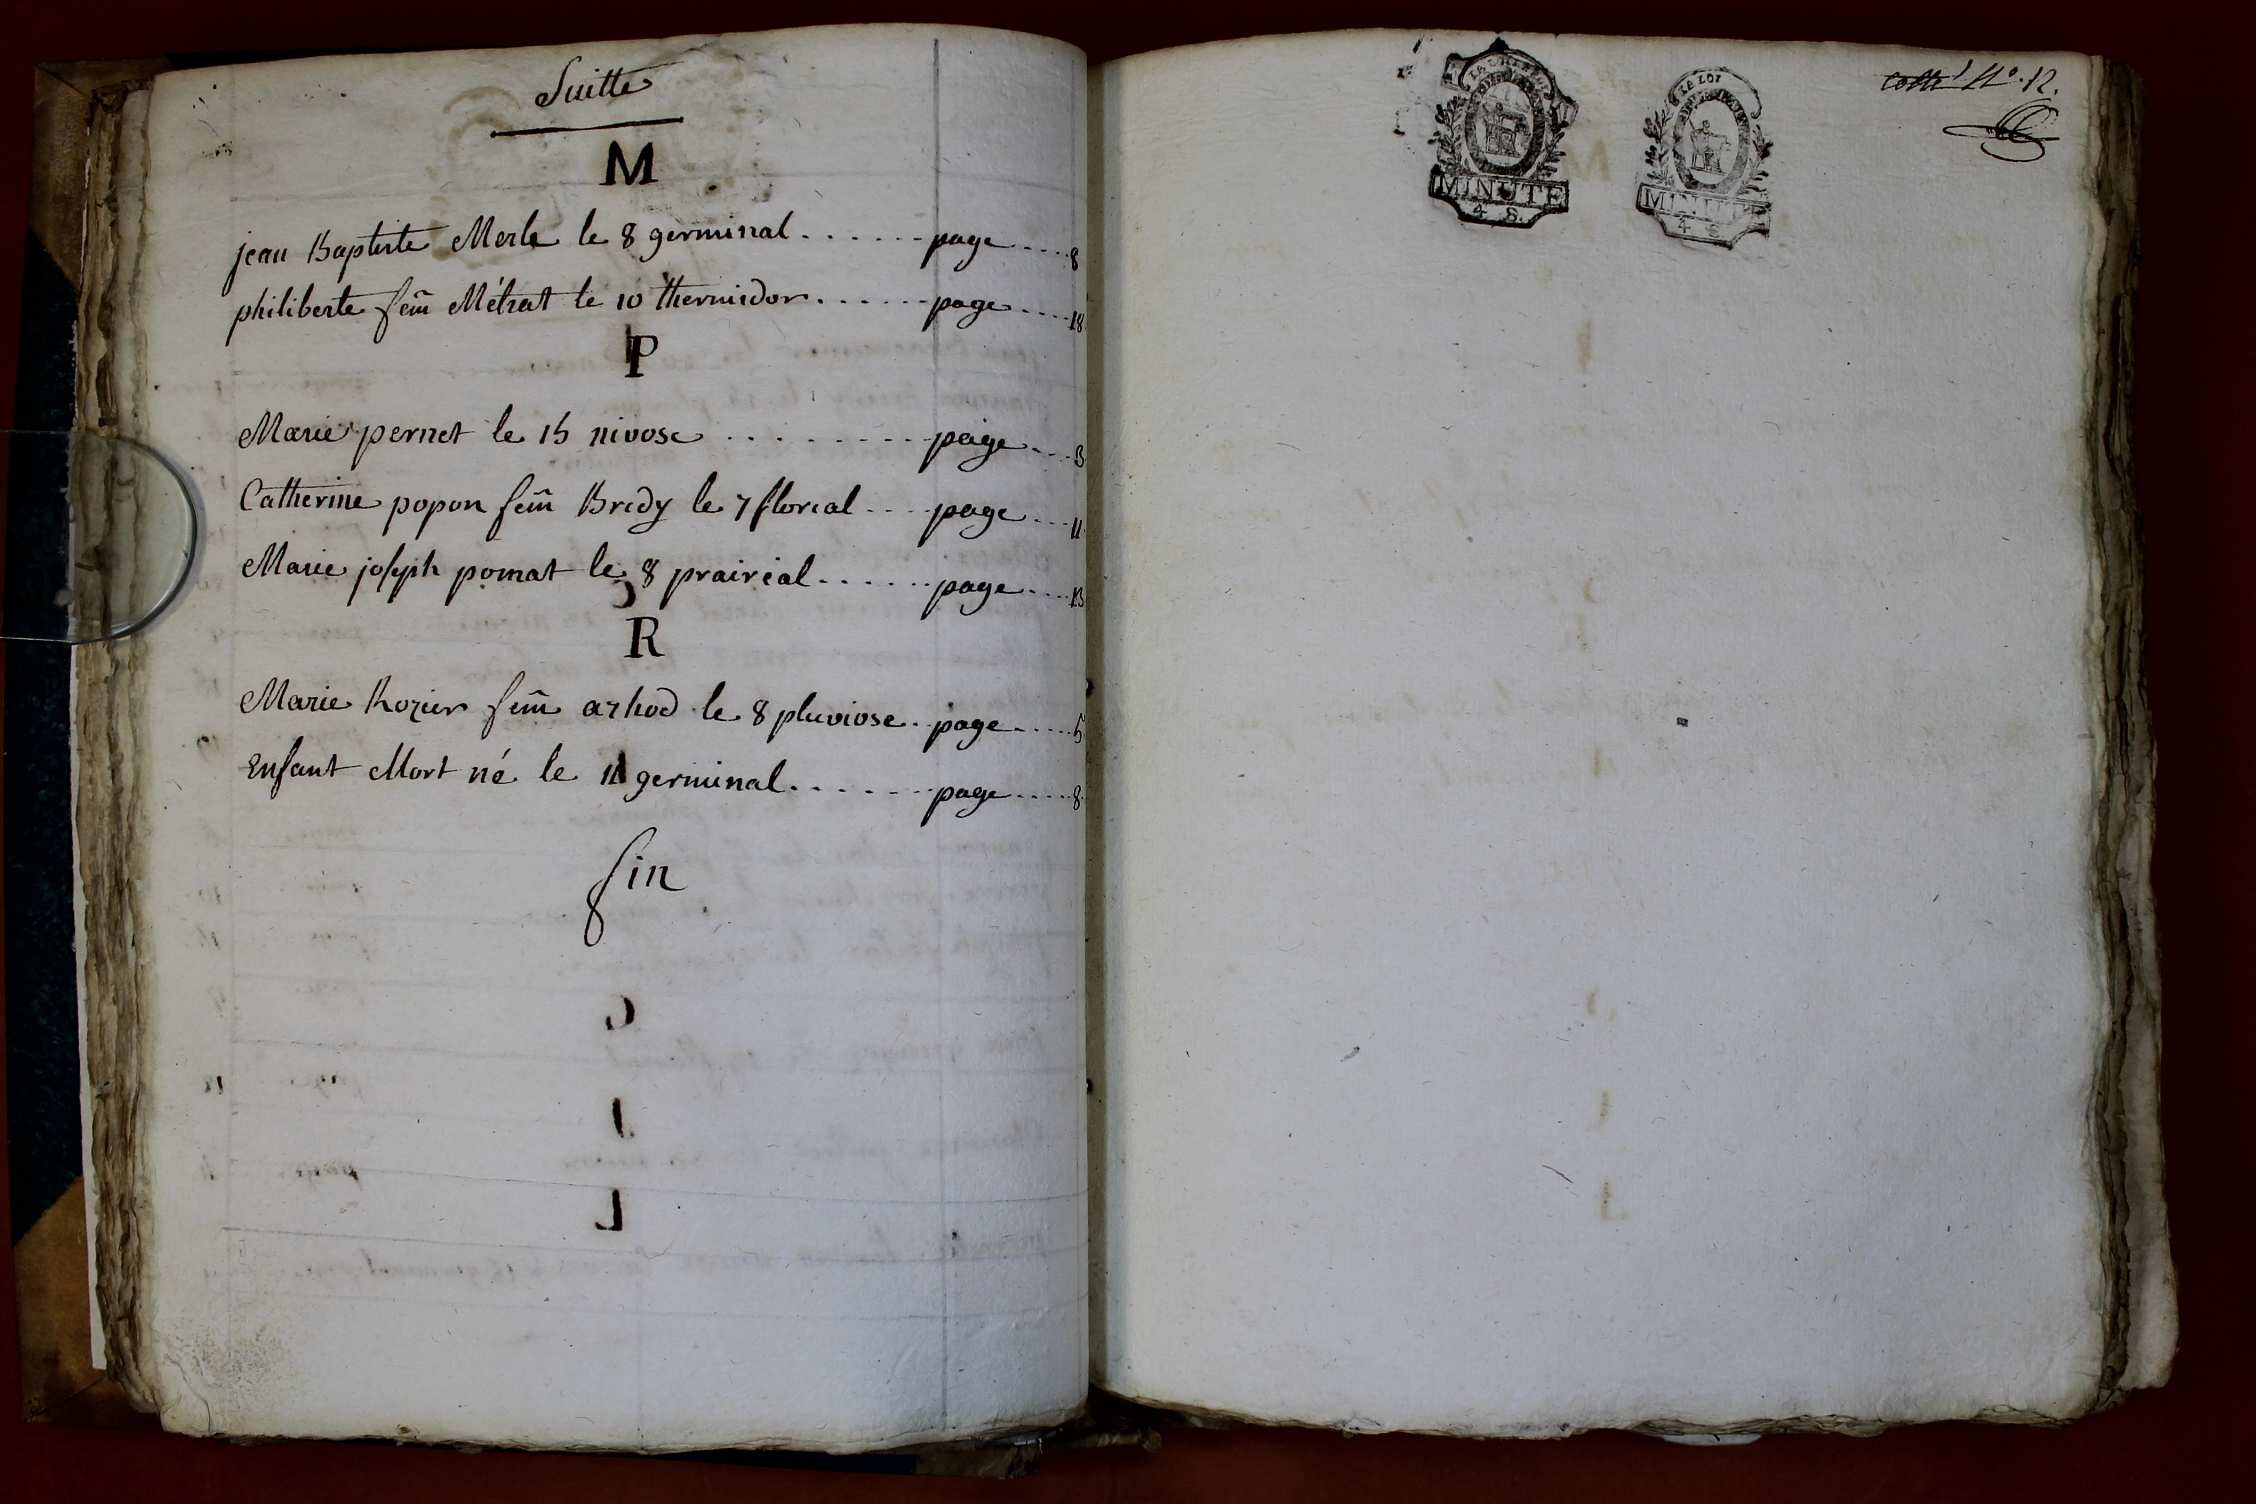 Suitte
M
jean Baptiste Merle le 8 germinal . . . . . . . page . . . . 8
philiberte fem̃ Métrat le 10 thermidor . . . . . . page . . . . 18
P
Marie pernet le 15 nivose . . . . . . . . . page . . . 3
Catherine popon fem̃ Bredy le 7 floreal . . . . page . . . 11
Marie joseph pomat le 8 praireal . . . . . . page . . . . 13
R
Marie Rozier fem̃ azhod le 8 pluviose . . page . . . . . 5
Enfant Mort né le 11 germinal . . . . . . . page . . . . . 8
fin
Cotté No. 12.
LA LOI
MINUTE
4 S.
LA LOI
MINUTE
4 S